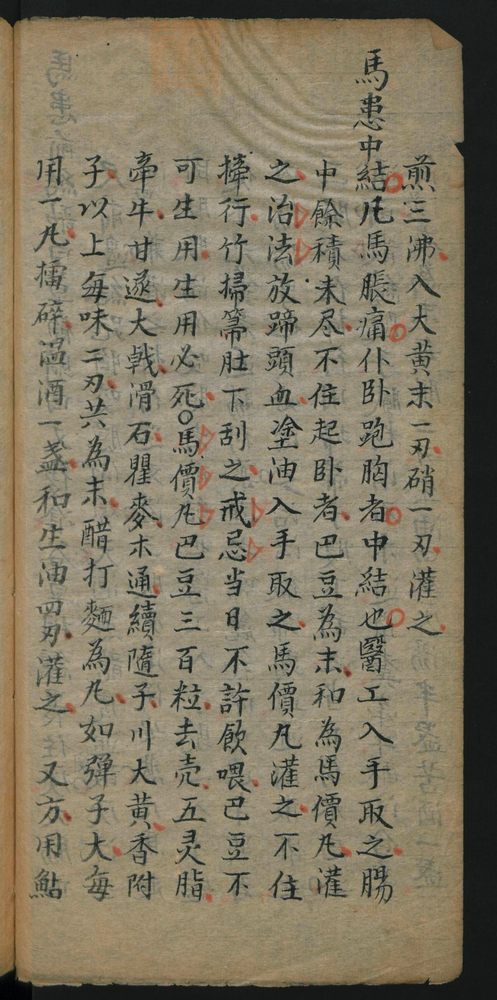 煎三沸入大黃末一刃硝一刃灌之
馬患中結凡馬脹痛仆卧跑胸者中結也醫工入手取之腸
中餘積未尽不住起卧者巴豆為末和為馬價丸灌
之治法放蹄頭血塗油入手取之馬價丸灌之不住
摔行竹掃箒肚下刮之戒忌当日不許飲喂巴豆不
可生用生用必死○馬價丸巴豆三百粒去壳五灵脂
牽牛甘遂大戟滑石瞿麥木通續隨子川大黃香附
子以上每味二刃共為末醋打麵為丸如彈子大每
用一丸擂碎温酒一盏和生油四刃灌之又方用鮎